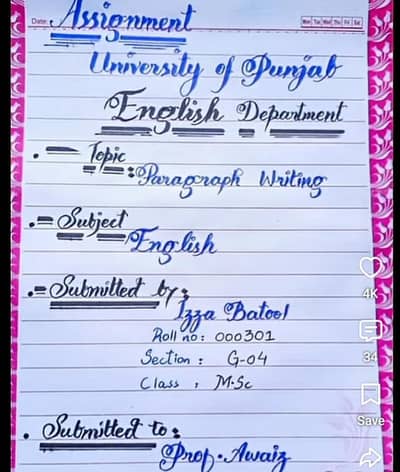 Date:
Mon Tue Wed Thu Fri Sat
Assignment
University of Punjab
English Department
Topic
:Paragraph Writing
Subject
English
Submitted by:
Izza Batool
Roll no: 000301
Section : G-04
Class : M.Sc
Submitted to:
Prof. Awaiz
4K
34
Save